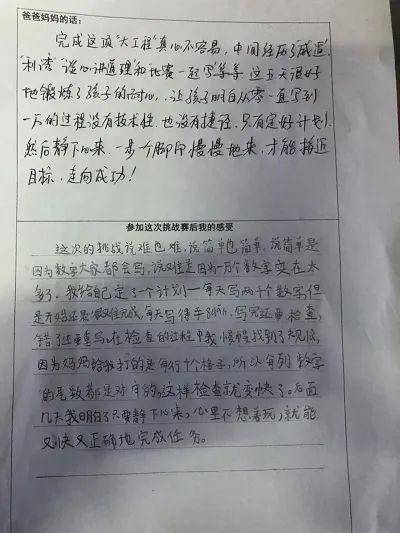 爸爸妈妈的话:
完成这项"大工程"真心不容易,中间经历了"威逼"
"利诱"谈心讲道理和比赛一起写等等 这五天很好
地锻炼了孩子的耐心,让孩子明白从零一直写到
一万的过程没有技术性,也没有捷径,只有定好计划
然后静下心来,一步一个脚印慢慢地来,才能接近
目标,走向成功!
参加这次挑战赛后我的感受
这次的挑战说难也难,说简单也简单,说简单是
因为数字大家都会写,说难是因为一万个数字实在太
多了。我给自己定了一个计划—每天写两千个数字但
是开始还是很难完成,每天写得手酸,写完还要检查,
错了还要重写。在检查的过程中我慢慢找到了规律,
因为妈妈给我打的是每行十个格子,所以每列数字
的尾数都是对齐的,这样检查就变快了。后面
几天我明白了只要静下心来,心里不想着玩,就能
又快又正确地完成任务。